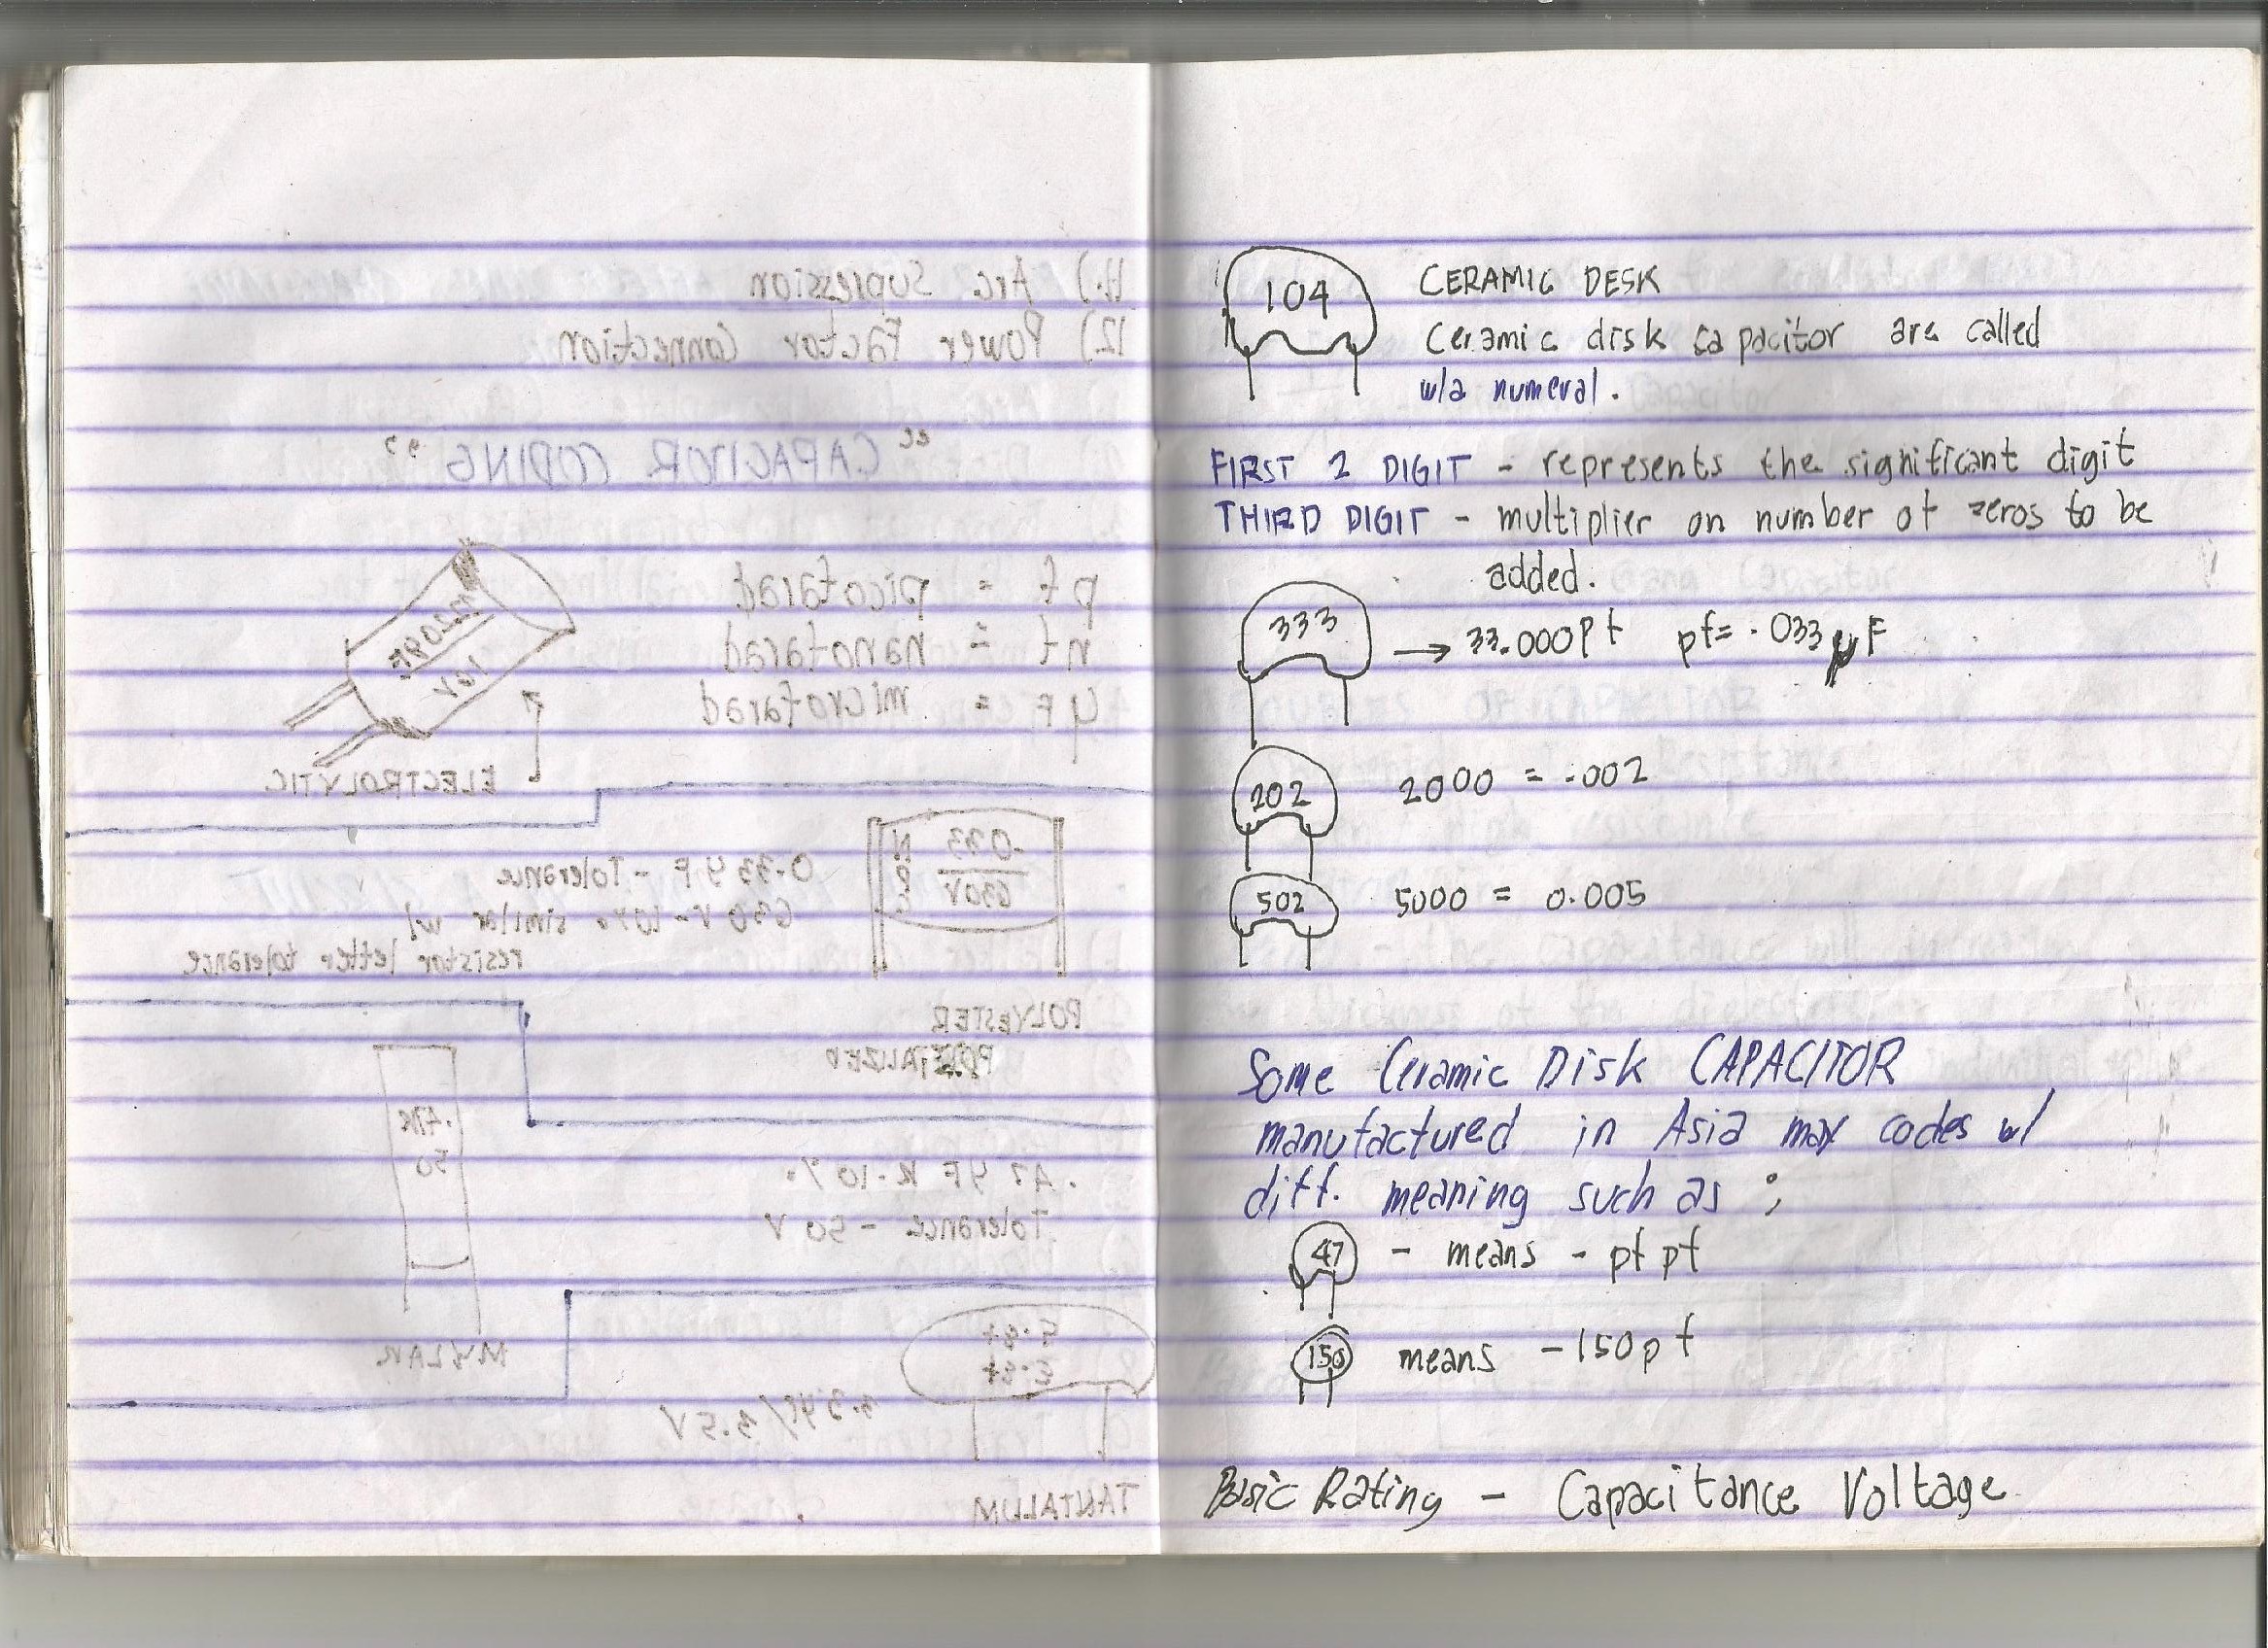 11.) Arc Supression
12.) Power Factor Connection
"CAPACITOR CODING"
pf = picofarad
nf = nanofarad
µF = microfarad
10V
ELECTROLYTIC
.033 N
630V
0.33 µF - Tolerance
630 V - 10% similar w/
resistor letter tolerance
POLYESTER
.47K
50
.47 µF K-10%
Tolerance - 50 V
MYLAR
3.3µf/3.5V
TANTALUM
104
CERAMIC DESK
Ceramic disk capacitor are called
w/a numeral.
FIRST 2 DIGIT - represents the significant digit
THIRD DIGIT - multiplier on number of zeros to be
added.
333 → 33.000Pf pf= .033 µF
202 2000 = .002
502 5000 = 0.005
Some Ceramic Disk CAPACITOR
manufactured in Asia may codes w/
diff. meaning such as ;
47 - means - pf pf
150 means - 150pf
Basic Rating - Capacitance Voltage